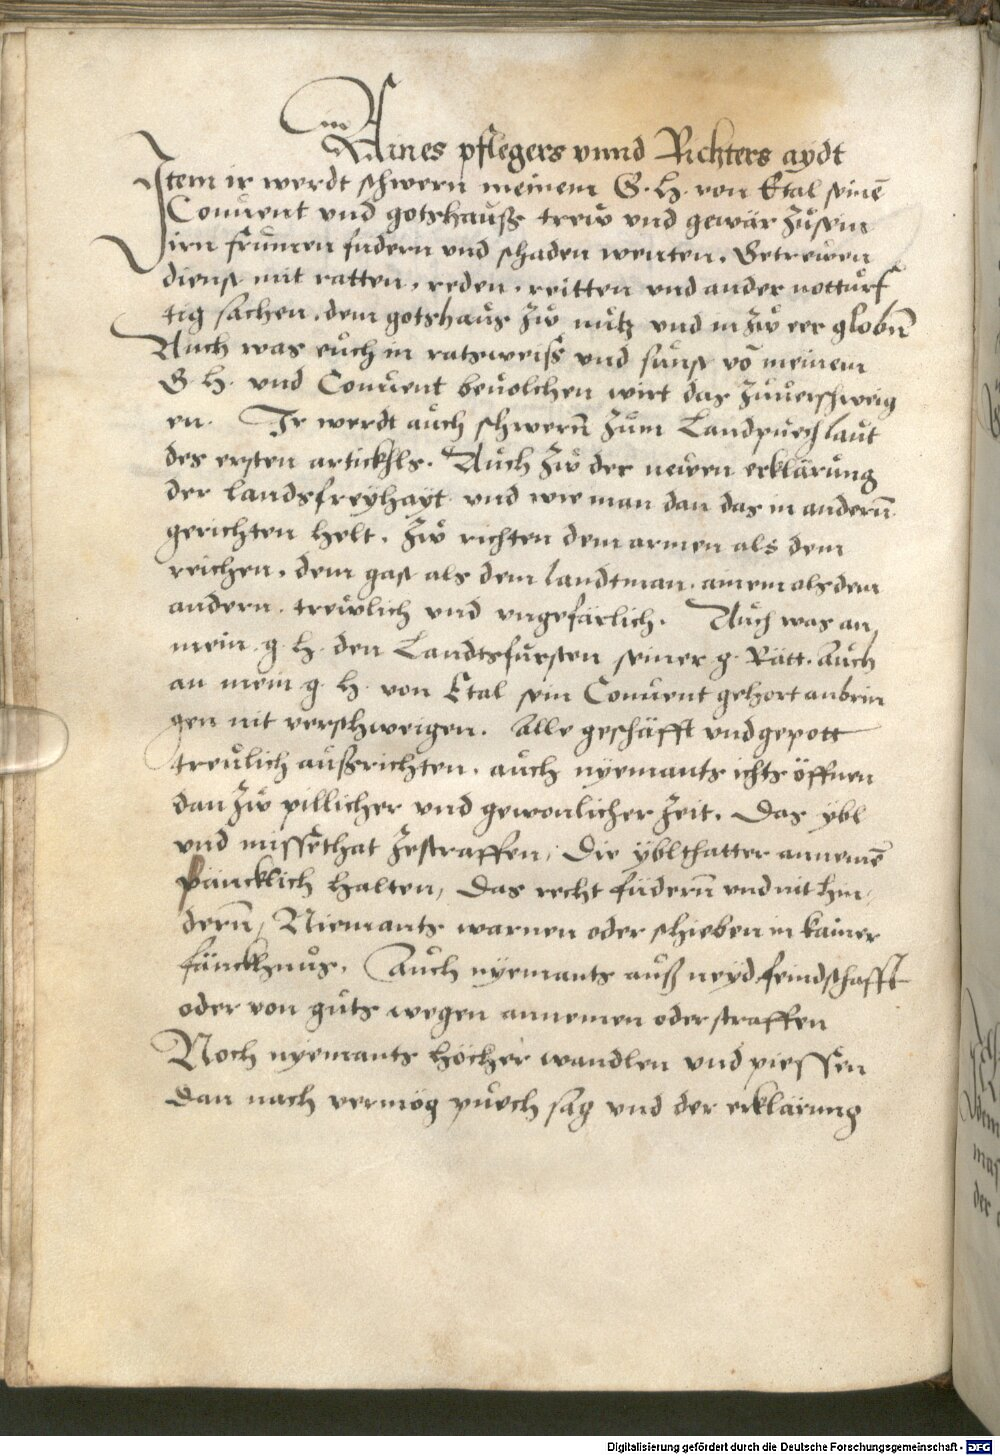 Aines pflegers vnnd Richters aydt
Item ir werdt schwern meinem G. H. von Etal seinē
Conuent vnd gotshauß trew vnd gewär zůsein
irn frumen fudern vnd schaden wenten. Getrewen
dienst mit ratten, reden, reitten vnd ander notturf
tig sachen, dem gotshaus zw nutz vnd in zw eer globn̄
Auch was euch in ratsweiß vnd sunst vō meinem
G. H. vnd Conuent beuolchen wirt das zuuerschweig
en. Ir werdt auch schwern̄ zum Landpuech laut
des ersten artickhls. Auch zw der newen erklärung
der landsfreyhayt vnd wie man dan das in andern̄
gerichten helt. zw richten dem armen als dem
reichen, dem gast als dem landtman, ainem als dem
andern, trewlich vnd vngefärlich. Auch was an
mein g. h. den Landtsfursten seiner g. Rätt. Auch
an mein g. h. von Etal sein Conuent gehort anbrin
gen nit verschweigen. Alle geschäfft vnd gepott
treulich außrichten, auch nyemants ichts öffnen
dan zw pillicher vnd gewonlicher zeit. Das ybl
vnd missethat zestraffen, Die yblthatter annemē
väncklich halten, Das recht fůdern̄ vnd nit hin,
dern̄, Niemants warnen oder schieben in kainer
fänckhnus. Auch nyemants auß neyd feindschafft
oder von guts wegen annemen oder straffen
Noch nyemants höcher wandlen vnd piessen
Dan nach vermög puech sag vnd der erklärung
Digitalisierung gefördert durch die Deutsche Forschungsgemeinschaft - DFG